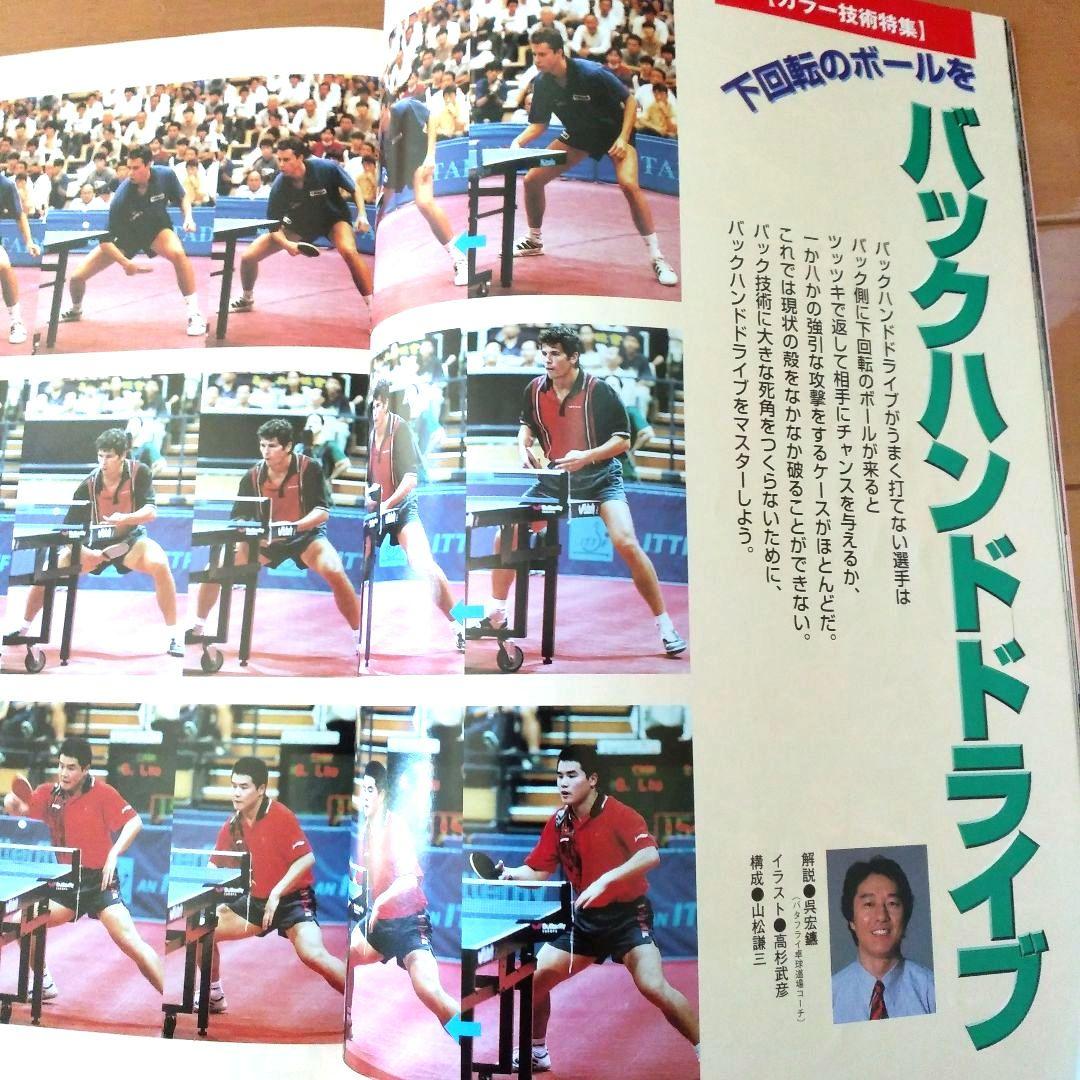 【カラー技術特集】
下回転のボールを
バックハンドドライブ
バックハンドドライブがうまく打てない選手は
バック側に下回転のボールが来ると
ツッツキで返して相手にチャンスを与えるか、
一か八かの強引な攻撃をするケースがほとんどだ。
これでは現状の殻をなかなか破ることができない。
バック技術に大きな死角をつくらないために、
バックハンドドライブをマスターしよう。
解説●呉宏鑣
(バタフライ卓球道場コーチ)
イラスト●高杉武彦
構成●山松謙三
TAD
ITTF
Butterfly